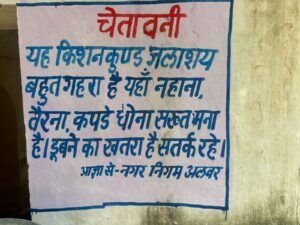 चेतावनी
यह किशनकुण्ड जलाशय
बहुत गहरा है यहाँ नहाना,
तैरना, कपडे धोना सख्त मना
है। डूबने का खतरा है सतर्क रहे।
आज्ञा से-नगर निगम अलवर